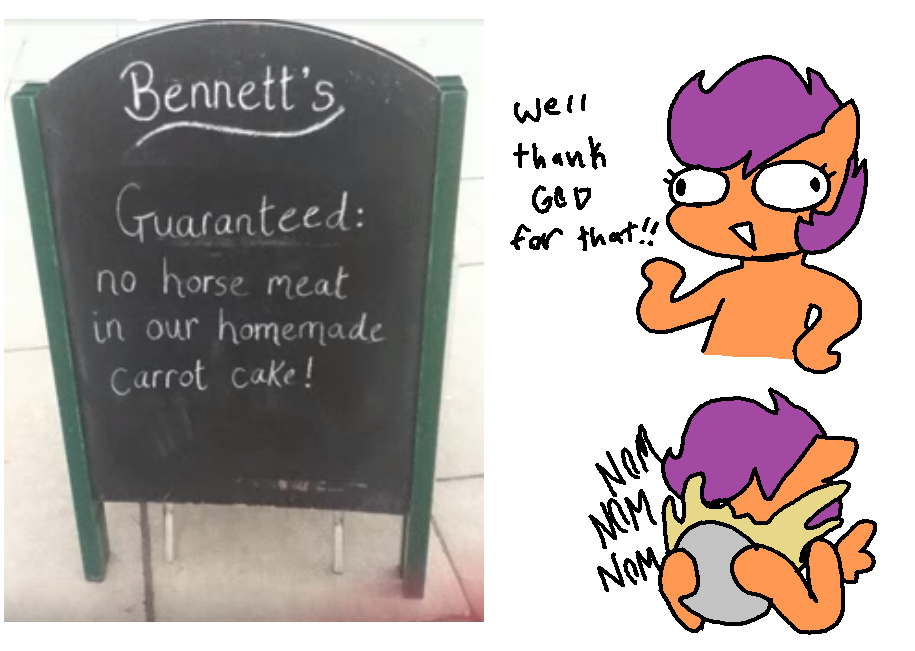 Bennett's
Guaranteed:
no horse meat
in our homemade
carrot cake!
Well
thank
GOD
for that!!
NOM
NOM
NOM